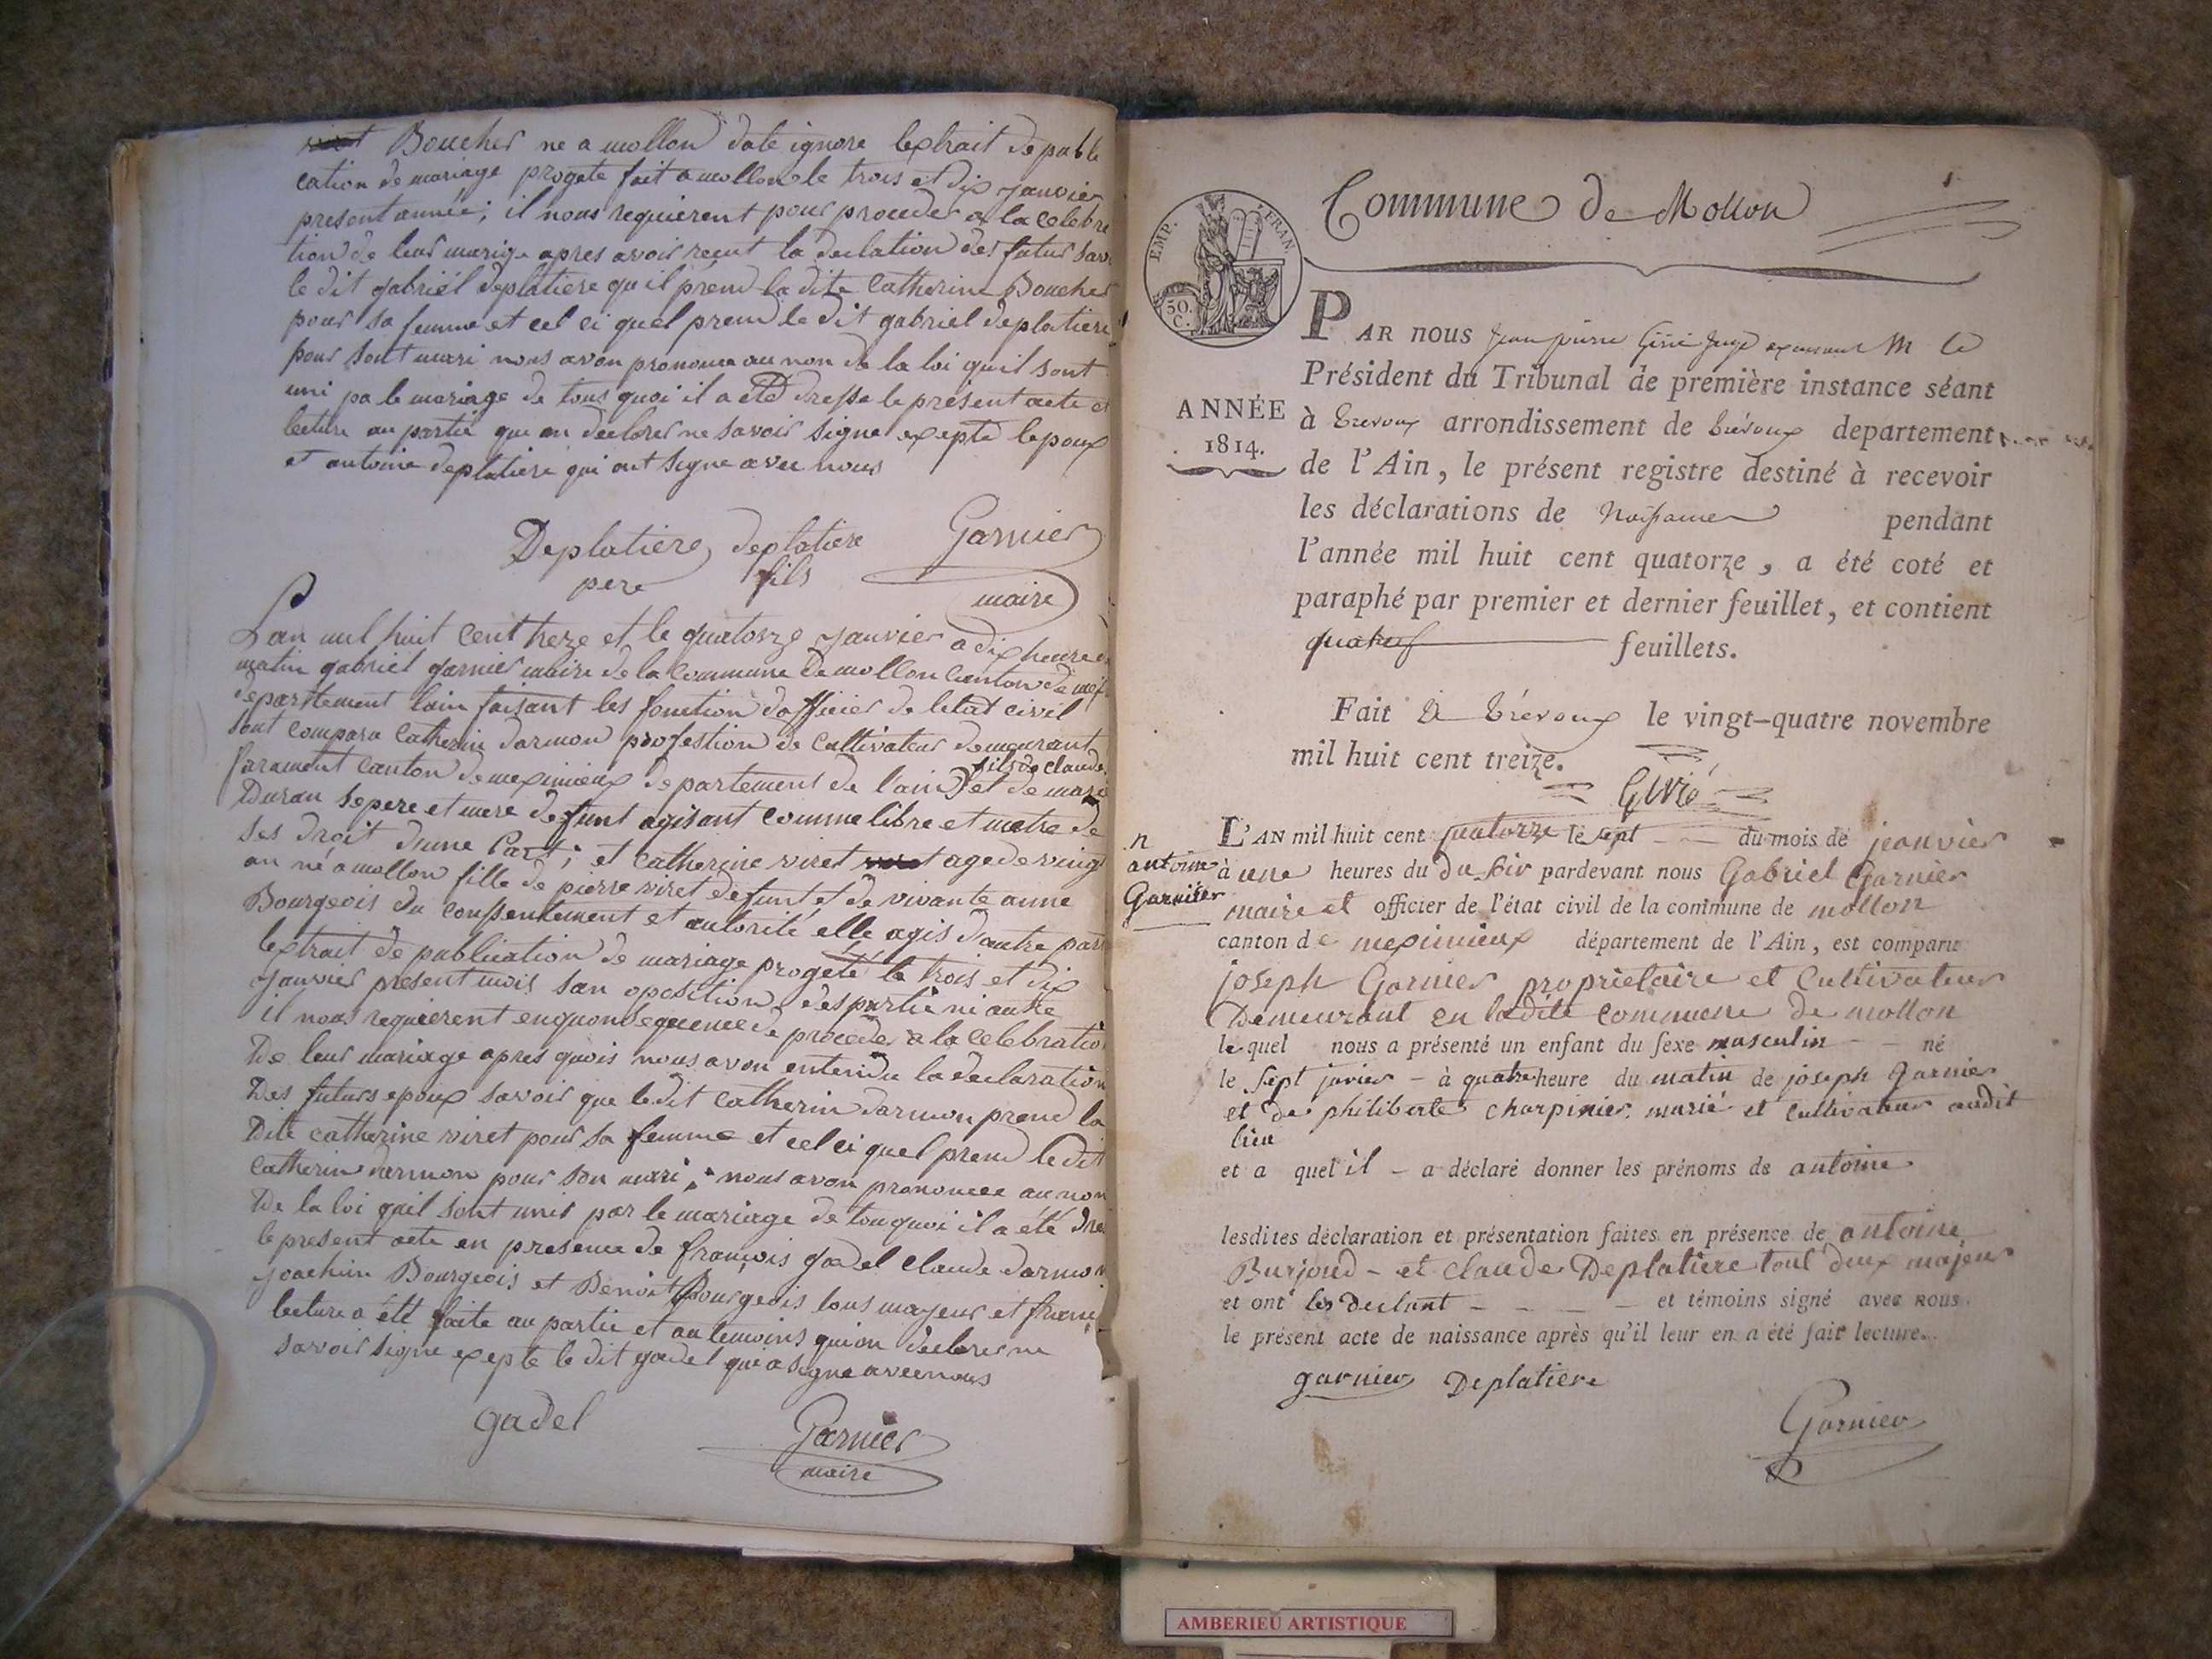 Boucher ne a mollon date ignore lextrait de publi
cation de mariage progete fait a mollon le trois et dix janvier
present année; il nous requierent pour proceder a la celebra
tion de leur mariage apres avoir recut la declation des futur savoir
le dit gabriel deplatiere qu il prend la dite Catherine Boucher
pour sa femme et cel ci quel prend le dit gabriel deplatiere
pour sont mari nous avon prononce au non de la loi quil sont
uni pa le mariage de tous quoi il a été dresse le présent acte et
lecture au partie que on declorer ne savoir signe exepte lepoux
et antoine deplatiere qui ont signe avec nous
Deplatiere deplatiere Garnier
pere fils maire
Lan mil huit cent treze et le quatorze janvier a dix heure du
matin gabriel garnier maire de la commune de mollon canton de mex
departtement lain faisant les fonction dofficier de letat civil
sont comparu Catherin darmon profestion de cultivateur demeurant
faramant canton demeximieux departement de l'ain fils de claude
et de marie
Duran se pere et mere defunt agisant comme libre et metre de
ses droit dune Part; et Catherine viret agede vingt
an né a mollon fille de pierre viret defunt et de vivante anne
Bourgeois du conssentement et autorité elle agis dautre part
lextrait de publication de mariage progeté le trois et dix
janvier present mois san oposition des partie ni autre
il nous requierent enquonsequence de proceder a la celebration
De leur mariage apres quois nous avon entendu la declaration
Des futurs epoux savoir que ledit Catherin darmon prend la
Dite catherine viret pour sa femme et cel ci quel prend le dit
Catherin darmon pour son mari; nous avon prononcee au non
De la loi quil sont unit par le mariage de tou quoi il a été dre
le present acte en presence de francois gadel claude darmon
joachin Bourgeois et Benoit Bourgeois tous mayeur et franc
lecture a été faite au partie et au temoins quion declorer ne
savoir signe exepte le dit gadel qui a signe avec nous
gadel Garnier
maire
Commune de Mollon
EMP. FRAN
50.
C.
PAR NOUS Jean pierre Girié Juge exerceant M le
Président du Tribunal de première instance séant
ANNÉE
1814.
à trevoux arrondissement de trévoux departement
de l'Ain, le présent registre destiné à recevoir
les déclarations de Naissances pendant
l'année mil huit cent quatorze, a été coté et
paraphé par premier et dernier feuillet, et contient
quatre feuillets.
Fait à trévoux le vingt-quatre novembre
mil huit cent treize.
Girié
n
antoine
Garnier
L'AN mil huit cent quatorze le sept du mois de jeanvier
à une heures du du soir pardevant nous Gabriel Garnier
maire et officier de l'état civil de la commune de mollon
canton de meximieux département de l'Ain, est comparu
joseph Garnier proprietaire et Cultivateur
Demeurant en ladite commune de mollon
le quel nous a présenté un enfant du sexe masculin né
le sept janvier à quatre heure du matin de joseph garnier
et de philiberte charpinier, marié et cultivateur audit
lieu
et a quel il a déclaré donner les prénoms de antoine
lesdites déclaration et présentation faites en présence de antoine
Burjoud et claude Deplatiere tout deux majeur
et ont les declant et témoins signé avec nous
le présent acte de naissance après qu'il leur en a été fait lecture.
garnier Deplatiere
Garnier
AMBERIEU ARTISTIQUE